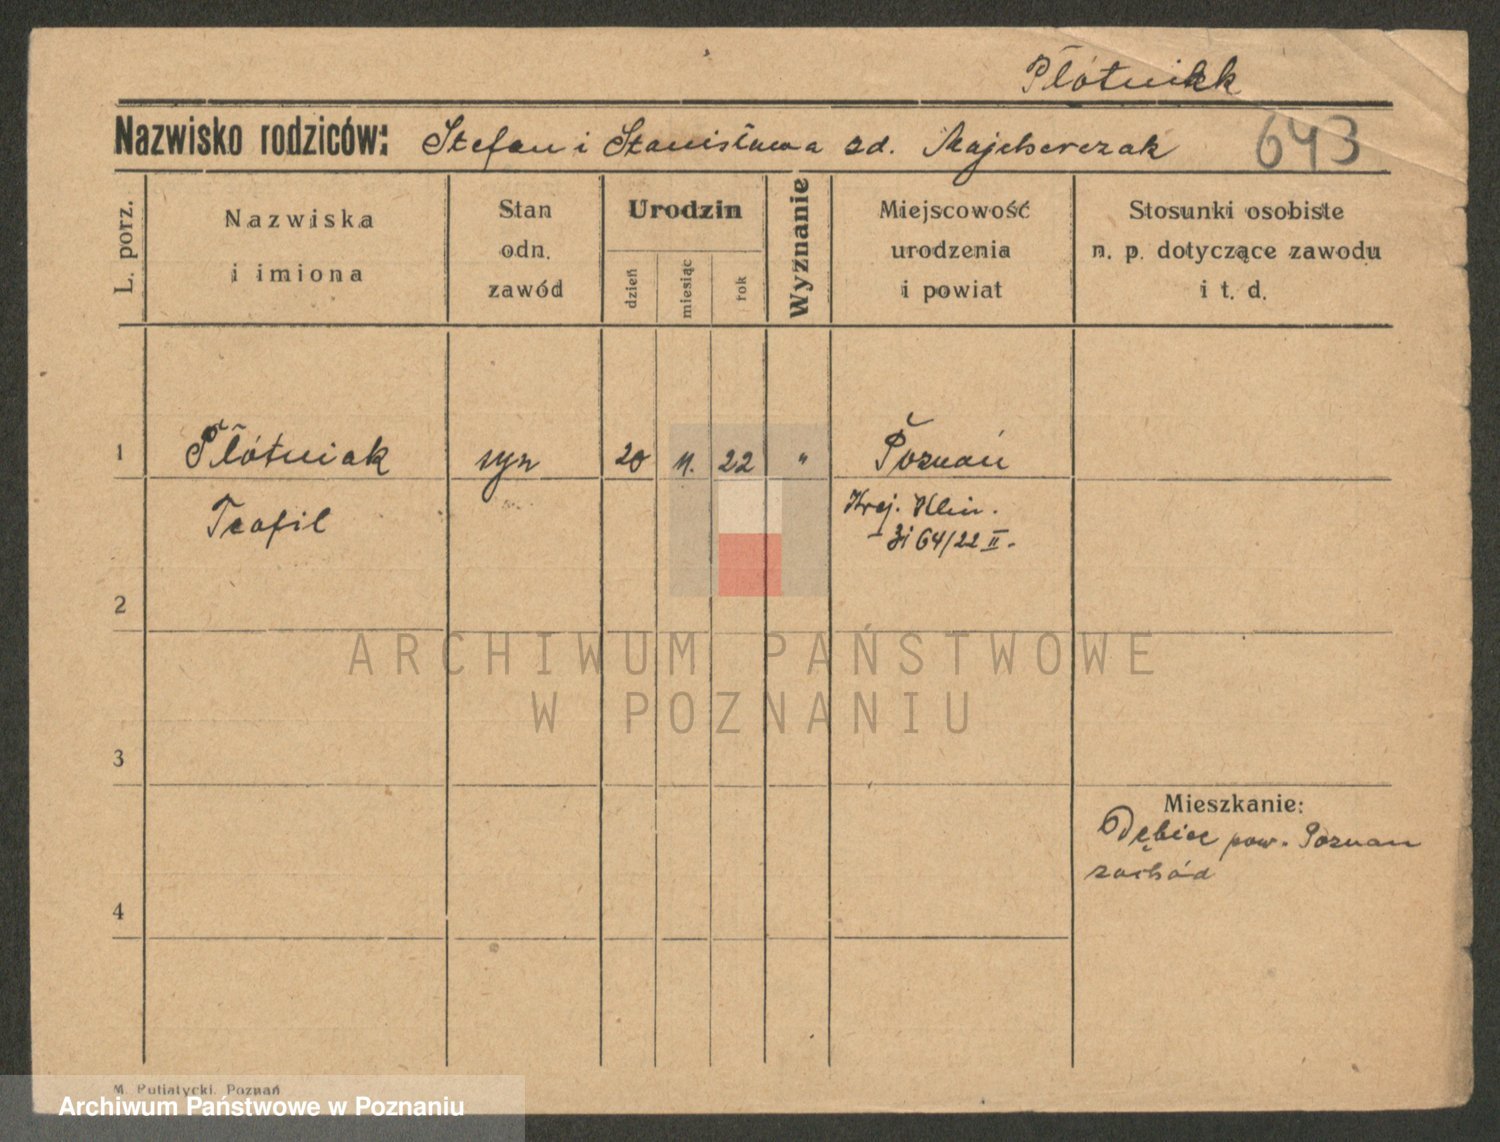 Płótniak
Nazwisko rodziców: Stefan i Stanisława zd. Majcherczak 643
L. porz.
Nazwiska
i imiona
Stan
odn.
zawód
Urodzin
dzień
miesiąc
rok
Wyznanie
Miejscowość
urodzenia
i powiat
Stosunki osobiste
n. p. dotyczące zawodu
i t. d.
1 Płótniak syn 20 11. 22 " Poznań
Teofil
64/22 II.
2
ARCHIWUM PAŃSTWOWE
W POZNANIU
3
Mieszkanie:
Dębiec pow. Poznan
zachód
4
M. Putiatycki, Poznań
Archiwum Państwowe w Poznaniu